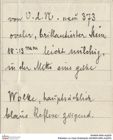 von V.d.N. nein 373
ovaler, brillantierter Stein
18:13 mm leicht milchig,
in der Mitte eine gelbe
Wolke, hauptsächlich
blaue Reflexe zeigend.